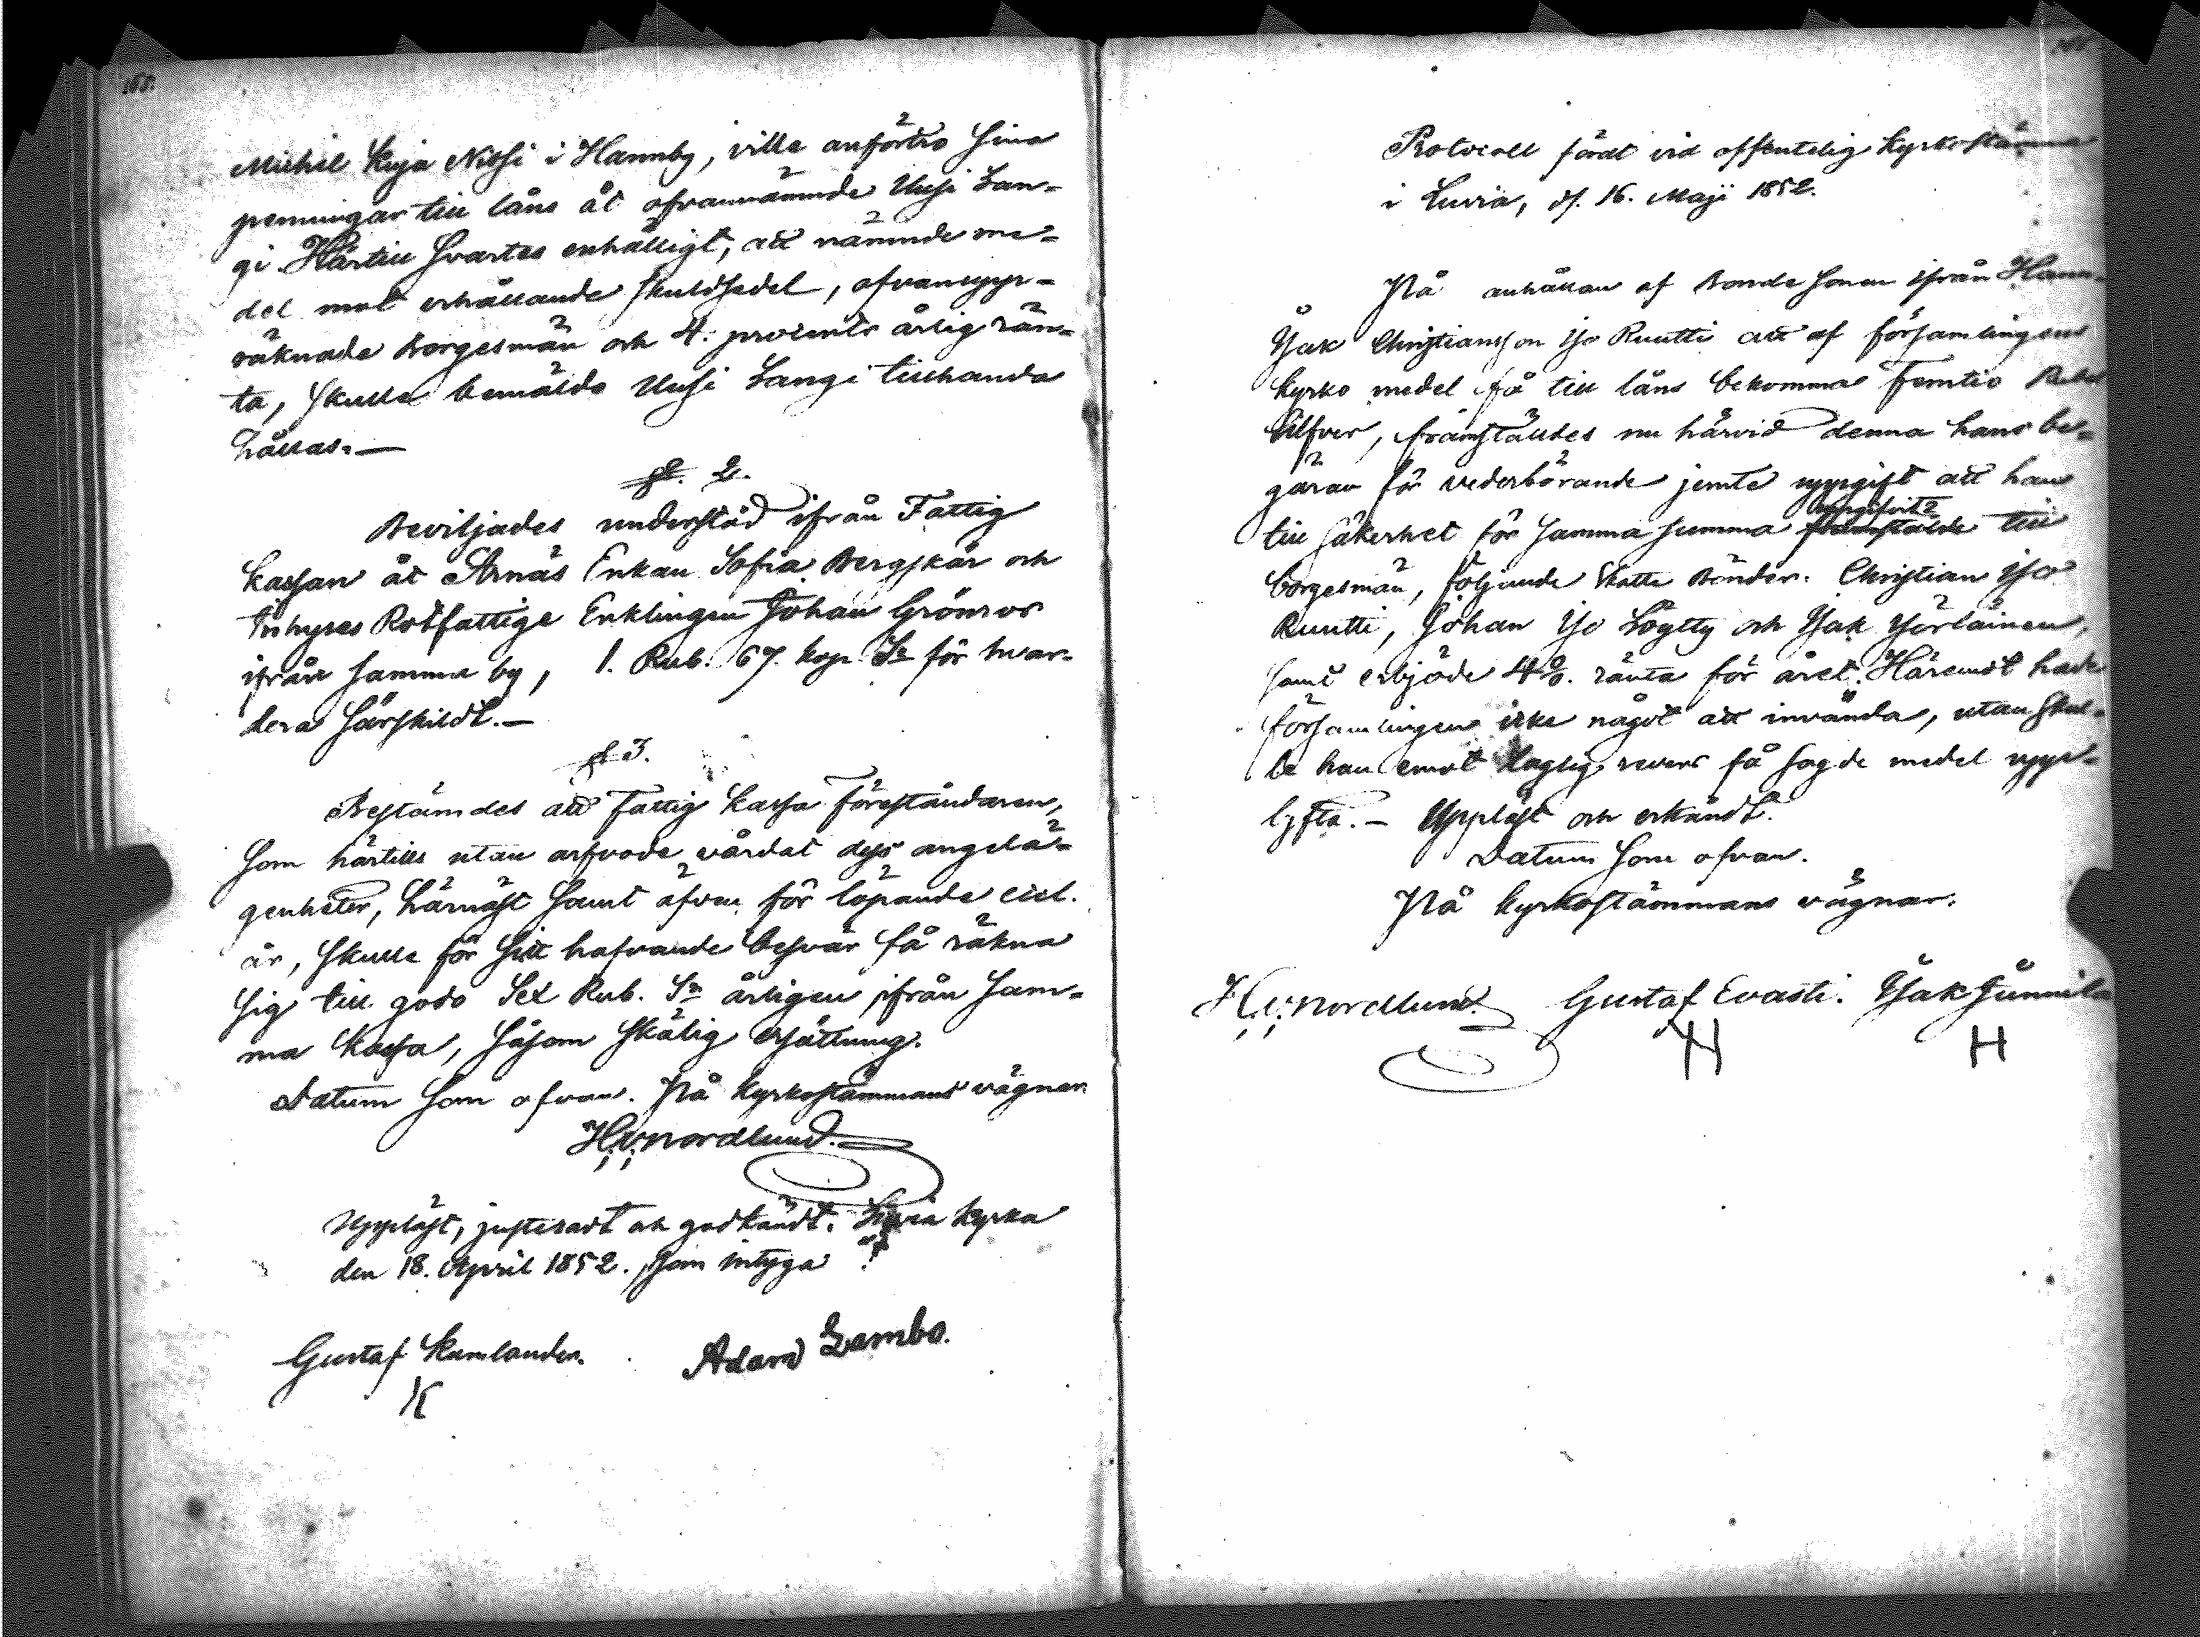 165.
Michel Kuja Nissi i Hannby, ville anförtro sina
penningar till låns åt ofvannämnde Uusi Lan-
gi. Härtill svartes enhälligt, att nämnde me-
del mot erhållande skuldsedel, ofvanupp-
räknade Borgesmän och 4. procents årlig rän-
ta, skulle bemälde Uusi Langi tillhanda
hållas.—
§. 2.
Beviljades understöd ifrån Fattig
kassan åt Arnäs Enkan Sofia Bergskär och
Inhyses Rotfattige Enklingen Johan Grönroos
ifrån samma by, 1. Rub. 67. kop. Sr för hvar-
dera särskildt.—
§ 3.
Bestämdes att Fattig kassa Föreståndaren,
som härtills utan arfvode vårdat dess angelä-
genheter, härnäst samt äfven för löpande ciel.
år, skulle för sitt hafvande besvär få räkna
sig till godo Sex Rub. Sr årligen ifrån sam-
ma kassa, såsom skälig ersättning.
Datum som ofvan. På kyrkostämmans vägnar
H. v. Nordlund.
Uppläst, justeradt och godkändt. Luvia kyrka
den 18. April 1852. som intyga
Gustaf Kumlander. Adam Lambo.
Protocoll fördt vid offentelig kyrkostämma
i Luvia, d. 16. Maji 1852.
På anhållan af Bonde sonen ifrån Hann-
Isak Christiansson Iso Ruutti att af församlingens
kyrko medel få till låns bekomma Femtio Rubel
Silfver, framstäldes nu härvid denna hans be-
gäran för vederbörande jemte uppgift att han
uppgifvit
till säkerhet för samma summa framstälde till
borgesmän, följande Skatte Bönder. Christian Iso
Ruutti, Johan Iso Löytty och Isak Yörläinen,
samt erbjöde 4 %. ränta för året. Häremot hade
församlingen icke något att invända, utan skul-
le han emot laglig revers få sagde medel upp-
lyfta.— Uppläst och erkändt.
Datum som ofvan.
På kyrkostämmans vägnar.
H. v. Nordlund. Gustaf Evasti. Isak Junnila